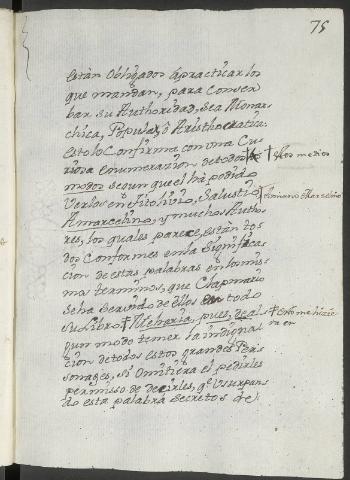 75
están Obligados á practicar los
que mandan, para Conser
bar su Authoridad, sea Monar
chica, Popular, ò Aristhocratica:
esto lo Confirma con una Cu
riosa enumerazion de todos
modos segun que el ha podido
Verlos en tito livio, Salustio
Amarcelino, y muchos Autho
res, los quales parece, están to
dos Conformes en la Significa
cion de estas palabras en los mis
mos terminos, que Clapmario
se ha servido de ellos en todo
su Libro. † me haria, pues, de al
gun modo temer la indigna
cion de todos estos grandes Per
sonages, si omitiera el pedirles
permisso de decirles, qe Usurpan
do esta palabra secretos de
† los medios
† Amiano Marcelino
† Esto me hizie
ra en